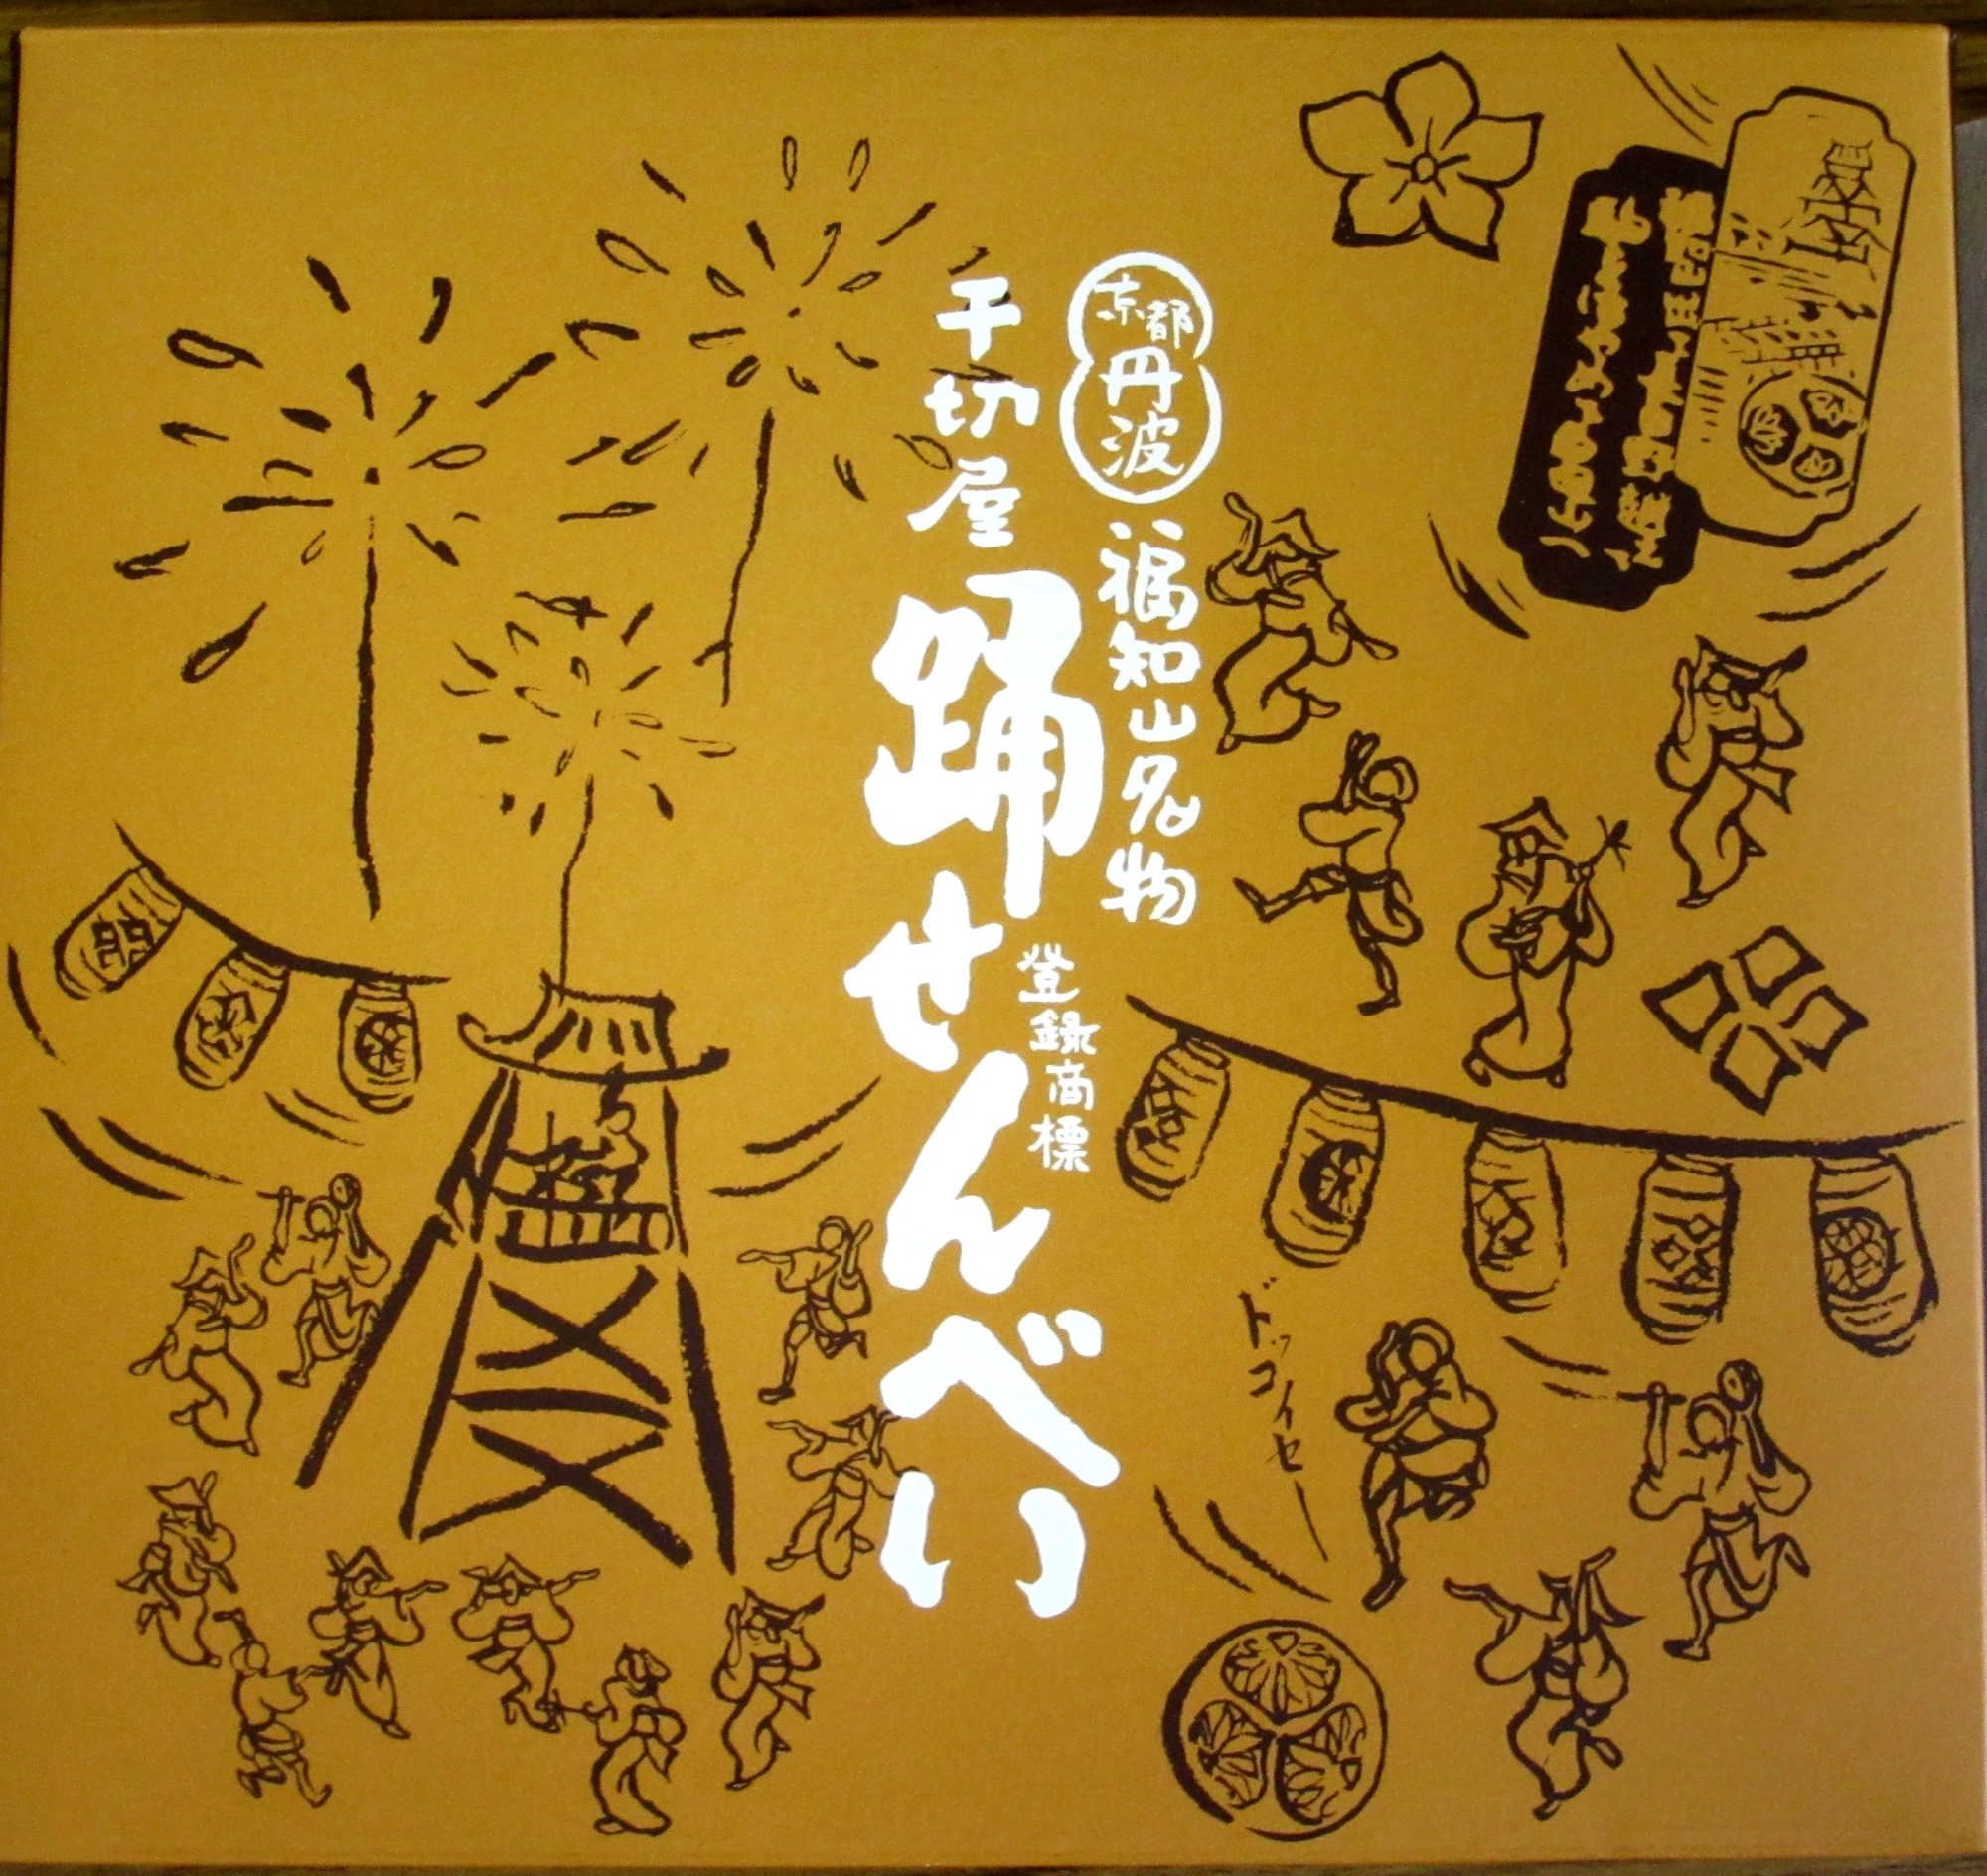 京都
丹波
福知山名物
千切屋
踊せんべい
登録商標
ドッコイセー